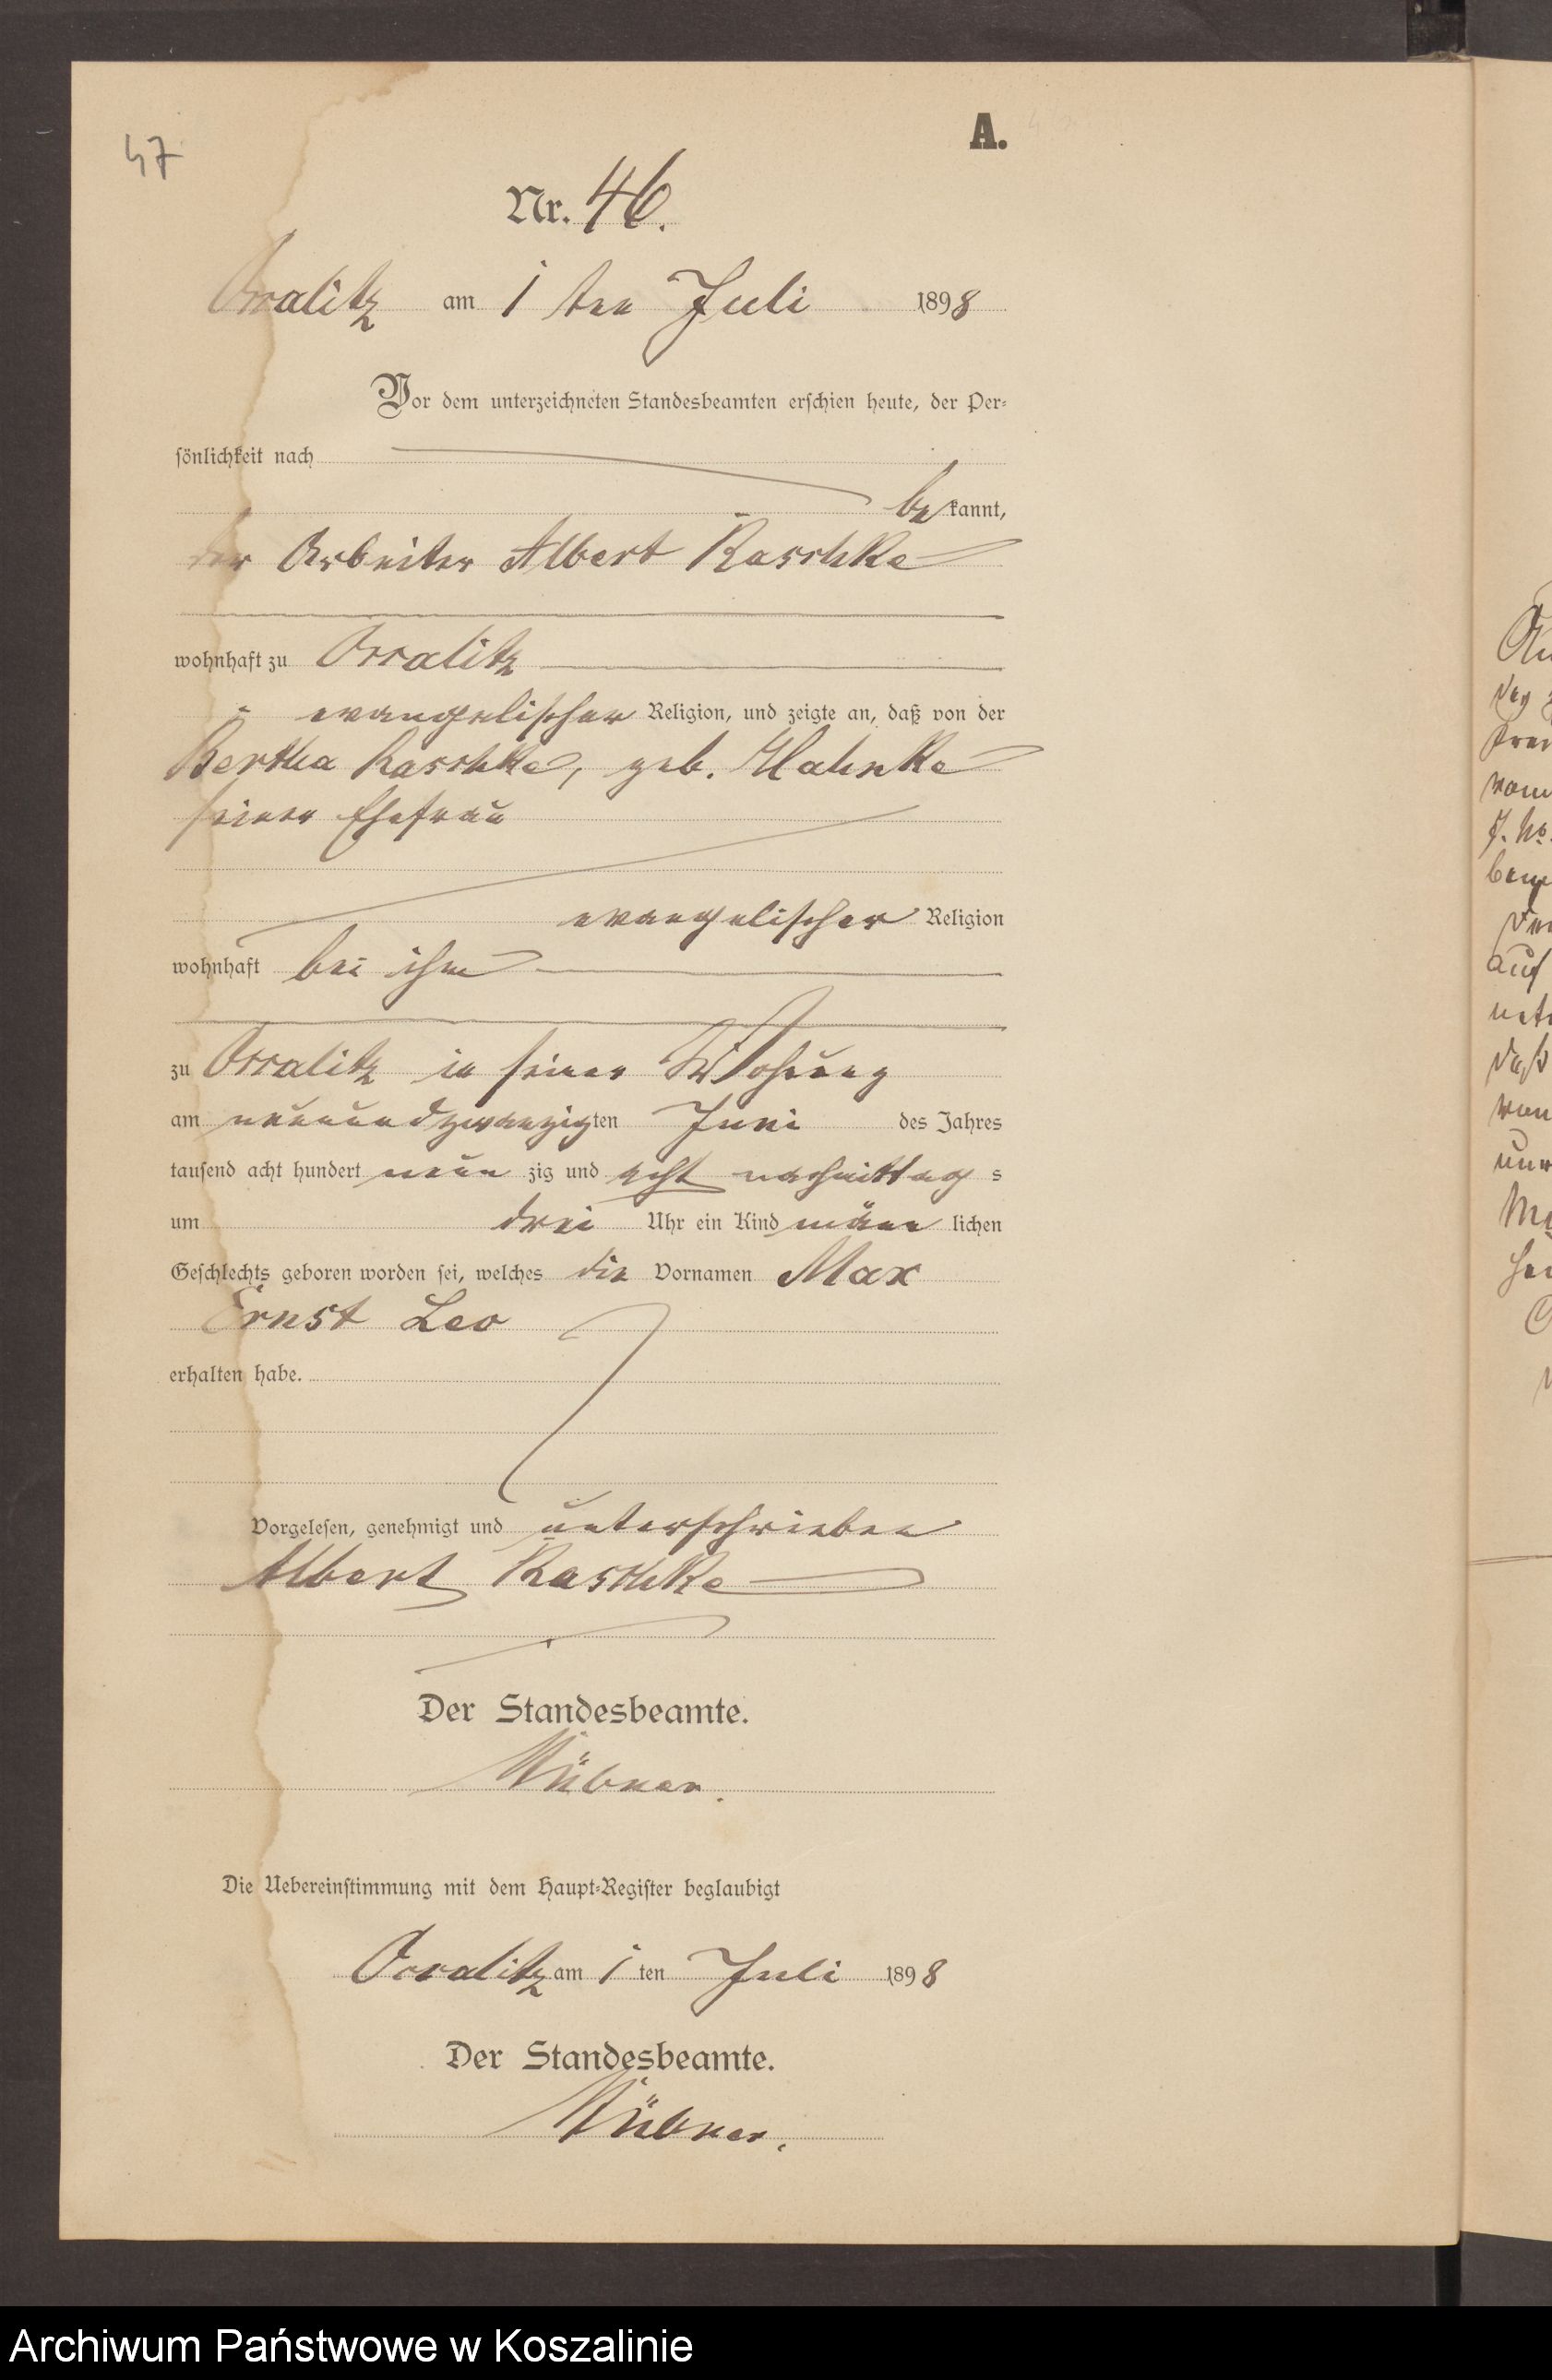 47
A.
Nr. 46.
am 1 ten Juli 1898
Vor dem unterzeichneten Standesbeamten erschien heute, der Per-
sönlichkeit nach
bekannt,
der Arbeiter Albert Raschke
wohnhaft zu
evangelischer Religion, und zeigte an, daß von der
Bertha Raschke, geb. Hahnke
seiner Ehefrau
evangelischer Religion
wohnhaft bei ihm
zu in seiner Wohnung
am neunundzwanzigten Juni des Jahres
tausend acht hundert neun zig und acht nachmittag s
um drei Uhr ein Kind männ lichen
Geschlechts geboren worden sei, welches die Vornamen Max
Ernst Leo
erhalten habe.
Vorgelesen, genehmigt und unterschrieben
Albert Raschke
Der Standesbeamte.
Die Uebereinstimmung mit dem Haupt-Register beglaubigt
am 1 ten Juli 1898
Der Standesbeamte.
Archiwum Państwowe w Koszalinie